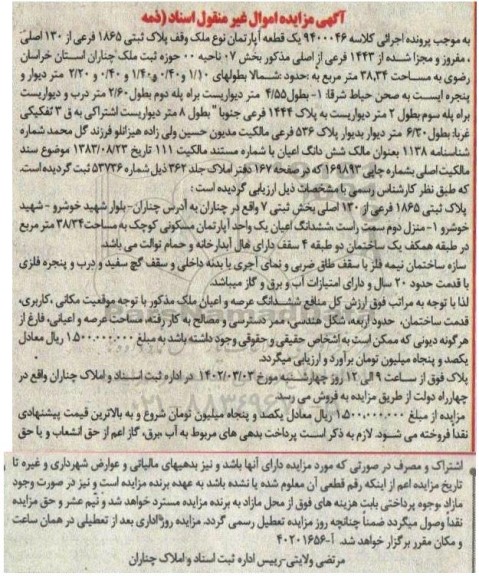 آگهی مزایده اموال غیر منقول اسناد (ذمه
به موجب پرونده اجرائی کلاسه ۹۴۰۰۰۴۶ یک قطعه آپارتمان نوع ملک وقف پلاک ثبتی ۱۸۶۵ فرعی از ۱۳۰ اصلی
، مفروز و مجزا شده از ۱۴۴۳ فرعی از اصلی مذکور بخش ۰۷ ناحیه ۰۰ حوزه ثبت ملک چناران استان خراسان
رضوی به مساحت ۳۸,۳۴ متر مربع به :حدود :شمالا بطولهای ۱/۱۰ و ۰/۴۰ و ۱/۴۰ و ۰/۴۰ و ۲/۲۰ متر دیوار و
پنجره ایست به صحن حیاط شرقا: ۱- بطول ۴/۵۵ متر دیواریست براه پله دوم بطول ۲/۶۰ متر درب و دیواریست
براه پله سوم بطول ۲ متر دیواریست به پلاک ۱۴۴۴ فرعی جنوبا " بطول ۸ متر دیواریست اشتراکی به ق ۳ تفکیکی
غربا: بطول ۶/۳۰ متر دیوار بدیوار پلاک ۵۳۶ فرعی مالکیت مدیون حسین ولی زاده هیزانلو فرزند گل محمد شماره
شناسنامه ۱۱۳۸ بعنوان مالک شش دانگ اعیان با شماره مستند مالکیت ۱۱۱ تاریخ ۱۳۸۳/۰۸/۲۳ موضوع سند
مالکیت اصلی بشماره چاپی ۱۶۹۸۹۳ که در صفحه ۱۶۷ دفتر املاک جلد ۳۶۲ ذیل شماره ۵۳۷۳۶ ثبت گردیده است.
که طبق نظر کارشناس رسمی با مشخصات ذیل ارزیابی گردیده است :
پلاک ثبتی ۱۸۶۵ فرعی از ۱۳۰ اصلی بخش ثبتی ۷ واقع در چناران به آدرس چناران- بلوار شهید خوشرو - شهید
خوشرو ۱- منزل دوم سمت راست ،ششدانگ اعیان یک واحد آپارتمان مسکونی کوچک به مساحت ۳۸/۳۴ متر مربع
در طبقه همکف یک ساختمان دو طبقه ۴ سقف دارای هال آبدارخانه و حمام توالت می باشد.
سازه ساختمان نیمه فلز با سقف طاق ضربی و نمای آجری با بدنه داخلی و سقف گچ سفید و درب و پنجره فلزی
با قدمت حدود ۲۰ سال و دارای امتیازات آب و برق و گاز میباشد.
لذا با توجه به مراتب فوق ارزش کل منافع ششدانگ عرصه و اعیان ملک مذکور با توجه موقعیت مکانی ،کاربری،
قدمت ساختمان، حدود اربعه، شکل هندسی، ممر دسترسی و مصالح به کار رفته، مساحت عرصه و اعیانی، فارغ از
هرگونه دیونی که ممکن است به اشخاص حقیقی و حقوقی وجود داشته باشد به مبلغ ۱.۵۰۰.۰۰۰.۰۰۰ ریال معادل
یکصد و پنجاه میلیون تومان برآورد و ارزیابی میگردد.
پلاک فوق از ساعت ۹ الی ۱۲ روز چهارشنبه مورخ ۱۴۰۲/۰۳/۰۳ در اداره ثبت اسناد و املاک چناران واقع در
چهارراه دولت از طریق مزایده به فروش می رسد.
مزایده از مبلغ ۱.۵۰۰.۰۰۰.۰۰۰ ریال معادل یکصد و پنجاه میلیون تومان شروع و به بالاترین قیمت پیشنهادی
نقدا فروخته می شود. لازم به ذکر است پرداخت بدهی های مربوط به آب ،برق، گاز اعم از حق انشعاب و یا حق
اشتراک و مصرف در صورتی که مورد مزایده دارای آنها باشد و نیز بدهیهای مالیاتی و عوارض شهرداری و غیره تا
تاریخ مزایده اعم از اینکه رقم قطعی آن معلوم شده یا نشده باشد به عهده برنده مزایده است و نیز در صورت وجود
مازاد ،وجوه پرداختی بابت هزینه های فوق از محل مازاد به برنده مزایده مسترد خواهد شد و نیم عشر و حق مزایده
نقدا وصول میگردد ضمنا چنانچه روز مزایده تعطیل رسمی گردد، مزایده روز اداری بعد از تعطیلی در همان ساعت
و مکان مقرر برگزار خواهد شد. آ-۴۰۲۰۱۶۵۶
مرتضی ولایتی-رییس اداره ثبت اسناد و املاک چناران